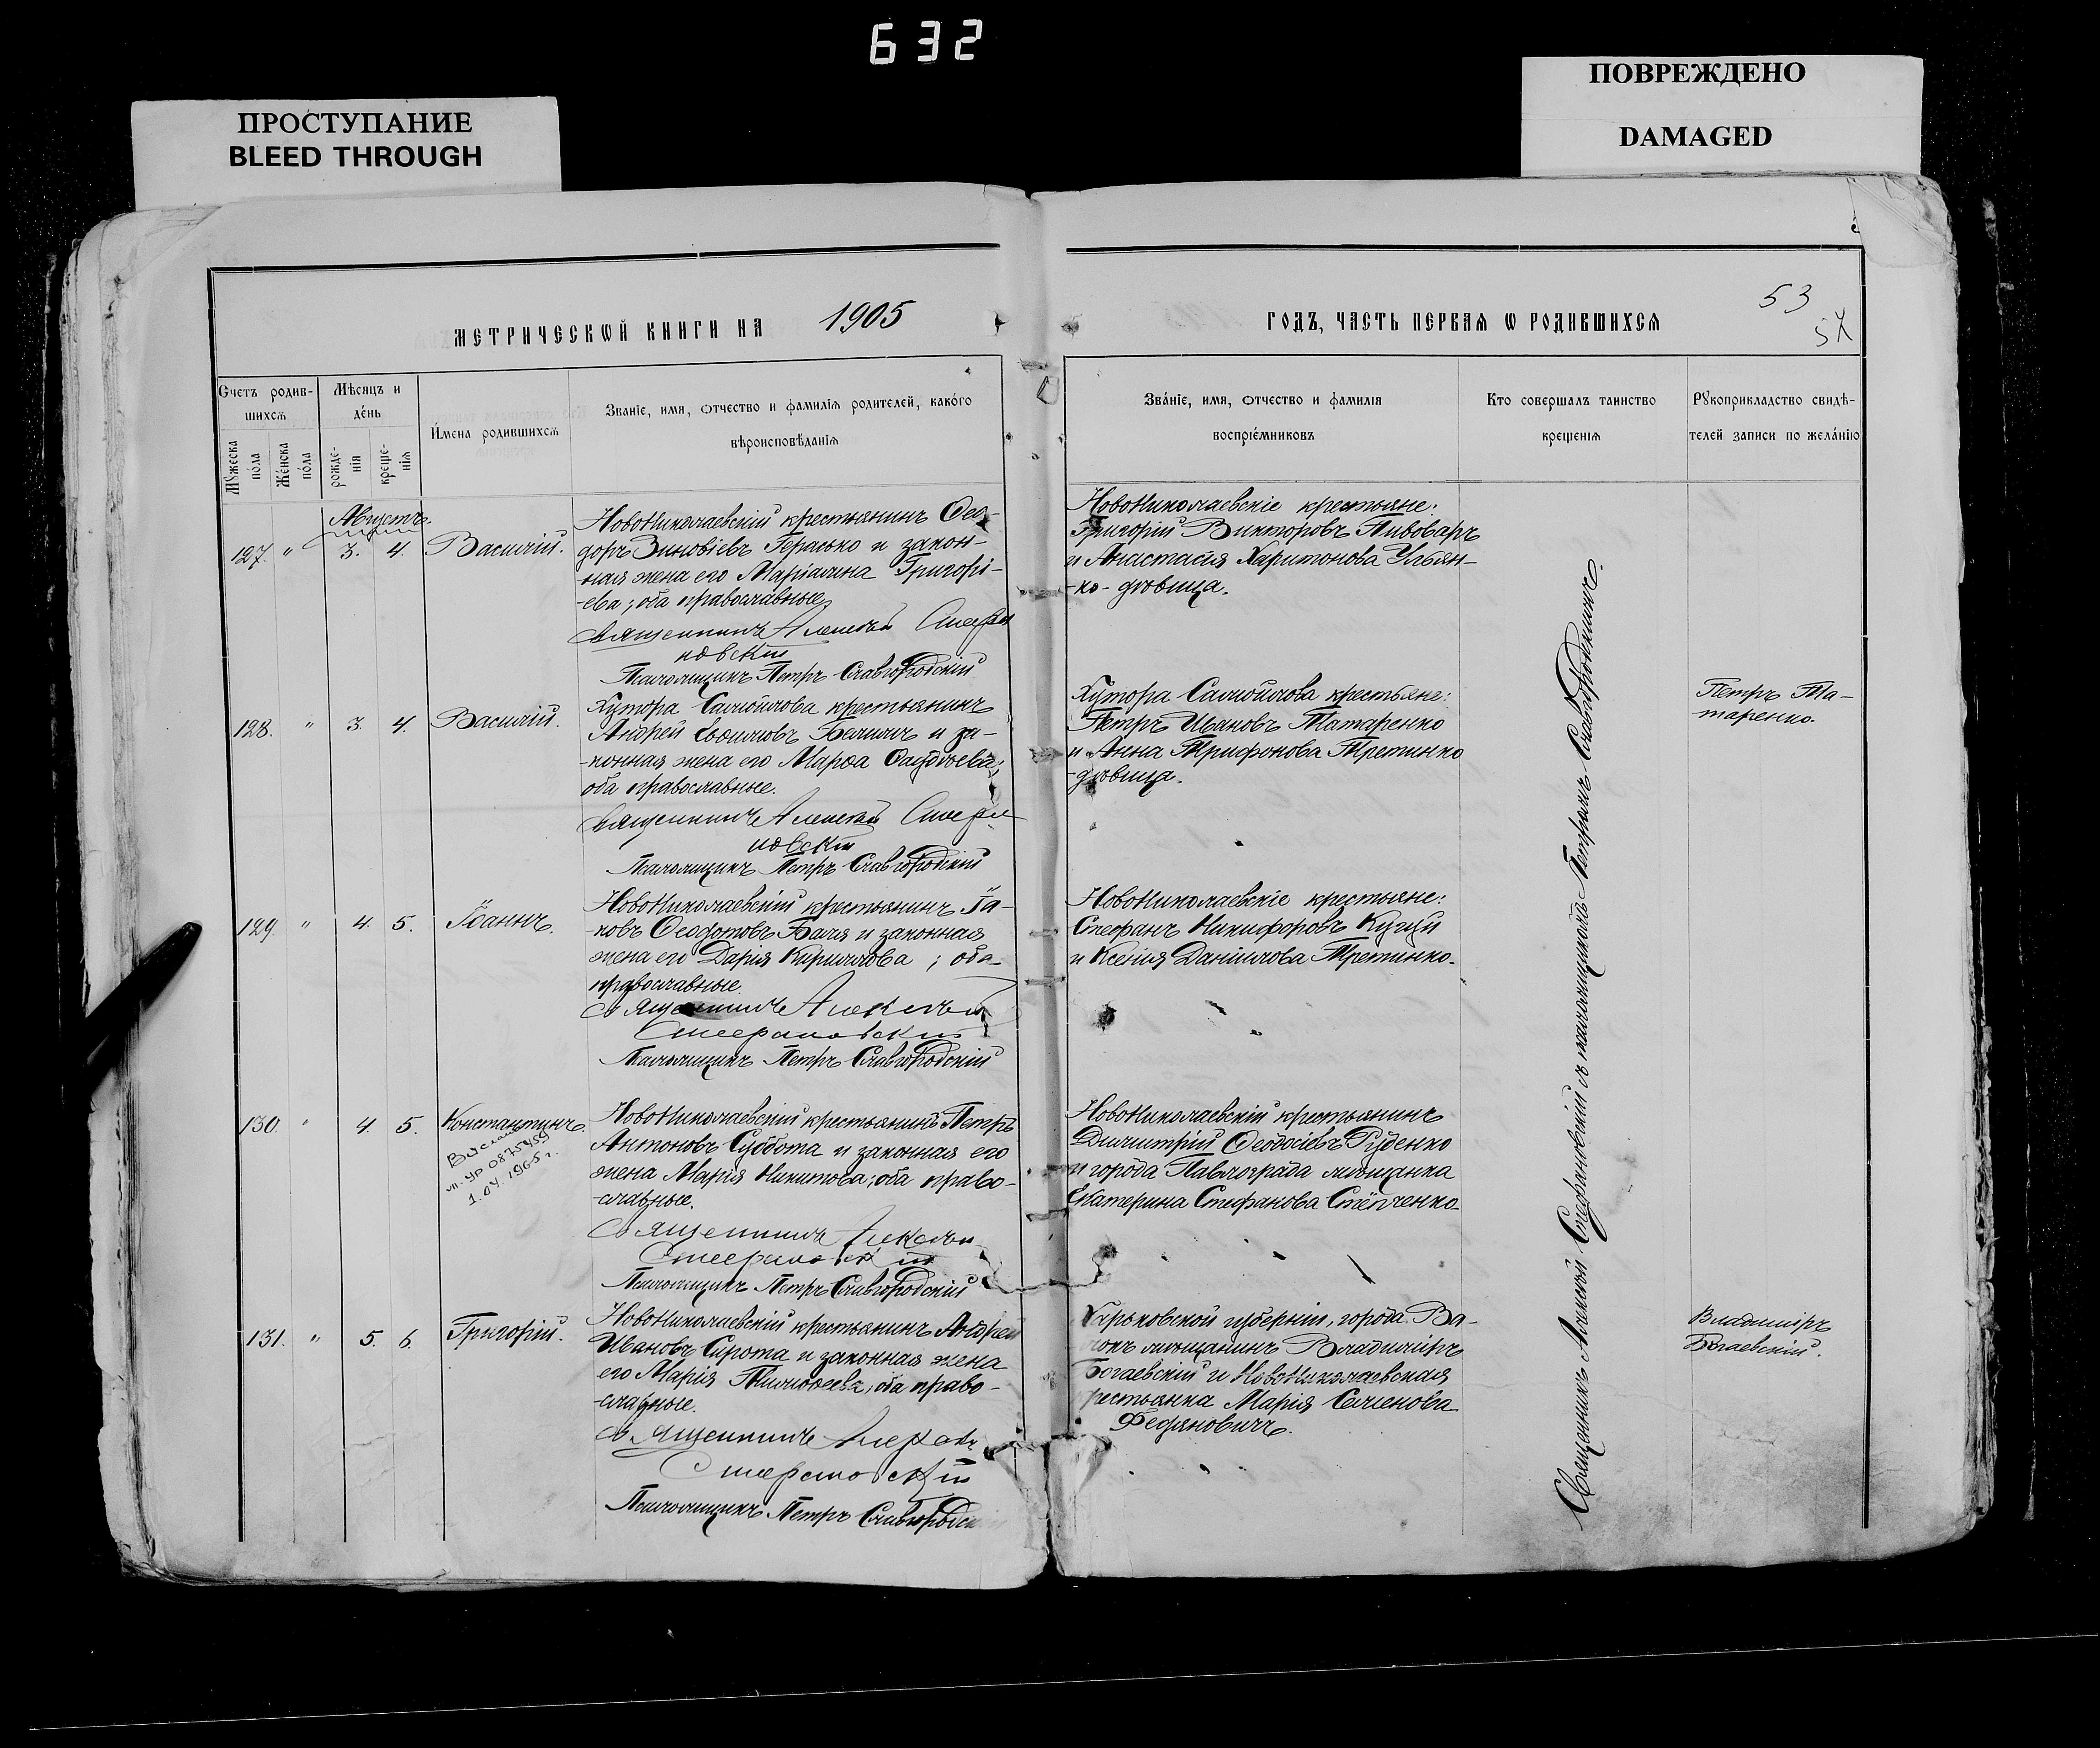 632
ПРОСТУПАНИЕ
BLEED THROUGH
ПОВРЕЖДЕНО
DAMAGED
53
МЕТРИЧЕСКѠЙ КНИГИ НА 1905
ГОДЪ, ЧАСТЬ ПЕРВАЯ Ѡ РОДИВШИХСѦ
Счетъ родив-
шихсѧ
Мужеска пола
Женска пола
Мѣсяцъ и
день
рожде-
нія
креще-
нія
Имена родившихсѧ
Званіе, имя, отчество и фамилія родителей, какого
вѣроисповѣданія
Званіе, имя, отчество и фамилія
воспріемниковъ
Кто совершалъ таинство
крещенія
Рукоприкладство свидѣ-
телей записи по желанію
Августъ
127. " 3. 4. Василій.
Новониколаевскій крестьянинъ Ѳео-
доръ Зиновіевъ Герасько и закон-
-ная жена его Маріамна Григорі-
-ева; оба православные
Священникъ Алексѣй Стефа
новскій
Псаломщикъ Петръ Славгородскій
Новониколаевскіе крестьяне:
Григорій Викторовъ Пивоваръ
и Анастасія Харитонова Ульян-
-ко- дѣвица.
128. " 3. 4. Василій.
Хутора Самойлова крестьянинъ
Андрей и за-
-конная жена его Марѳа
оба православные.
Священникъ Алексѣй Стефа
новскій
Псаломщикъ Петръ Славгородскій
Хутора Самойлова крестьяне:
Петръ Ивановъ Татаренко
и Анна Трифонова Третинко
-дѣвица.
Петръ Та-
таренко.
129. " 4. 5. Іоаннъ.
Новониколаевскій крестьянинъ Іа-
-ковъ Ѳедотовъ и законная
жена его Дарія Кириллова; оба
православные.
Священникъ Алексѣй
Стефановскій
Псаломщикъ Петръ Славгородскій
Новониколаевскіе крестьяне:
Стефанъ Никифоровъ
и Ксенія Даніилова Третинко.
130. " 4. 5. Константинъ.
Выслано
1.04.1965 г.
Новониколаевскій крестьянинъ Петръ
Антоновъ Суббота и законная его
жена Марія Никитова; оба право-
-славные.
Священникъ Алексѣй
Стефановскій
Псаломщикъ Петръ Славгородскій
Новониколаевскій крестьянинъ
Димитрій Ѳеодосіевъ Руденко
и города Павлограда мѣщанка
Екатерина Стефанова Стёпченко.
131. " 5. 6. Григорій.
Новониколаевскій крестьянинъ Андрей
Ивановъ Сирота и законная жена
его Марія Тимоѳеева, оба право-
-славные.
Священникъ Алексѣй
Стефановскій
Псаломщикъ Петръ Славгородскій
Харьковской губерніи, города Ва-
мѣщанинъ Владиміръ
Богаевскій и Новониколаевская
крестьянка Марія Семенова
Владиміръ
Богаевскій.
Священникъ Алексѣй Стефановскій съ псаломщикомъ Петромъ Славгородскимъ.